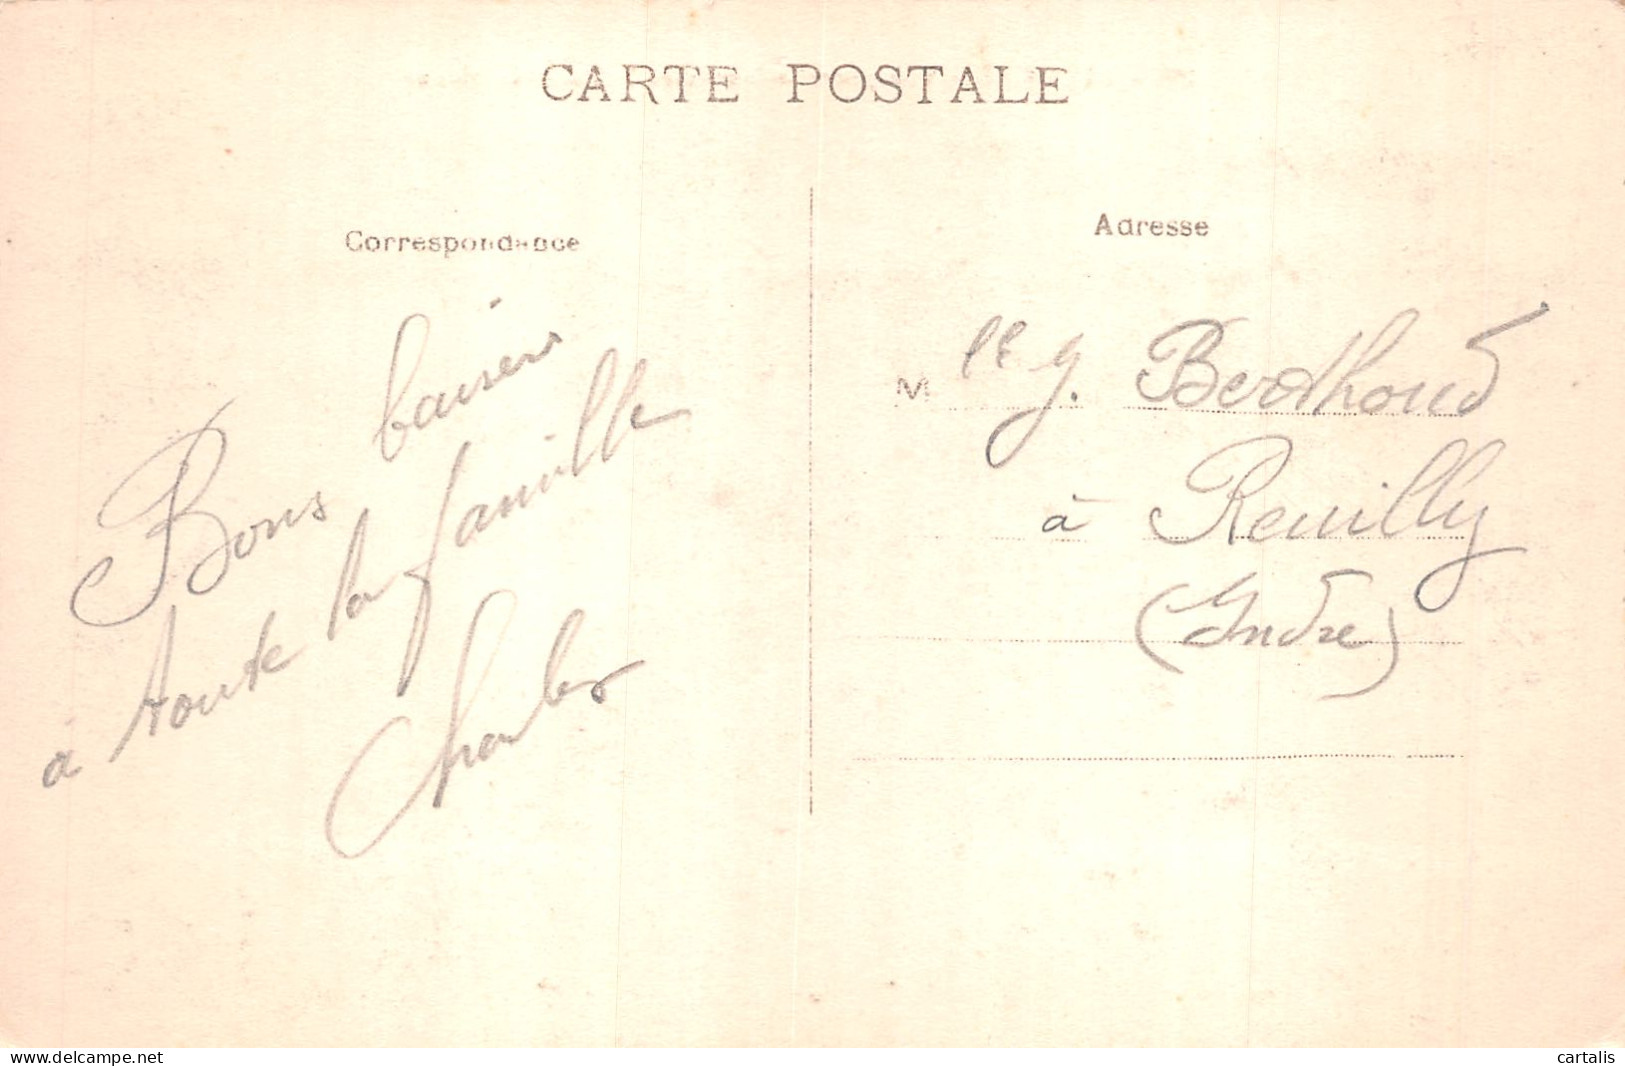 CARTE POSTALE
Correspondance
Bons baisers
à toute la famille
Charles
Adresse
Mlle G. Berthoud
à Reuilly
(Indre)
www.delcampe.net
cartalis